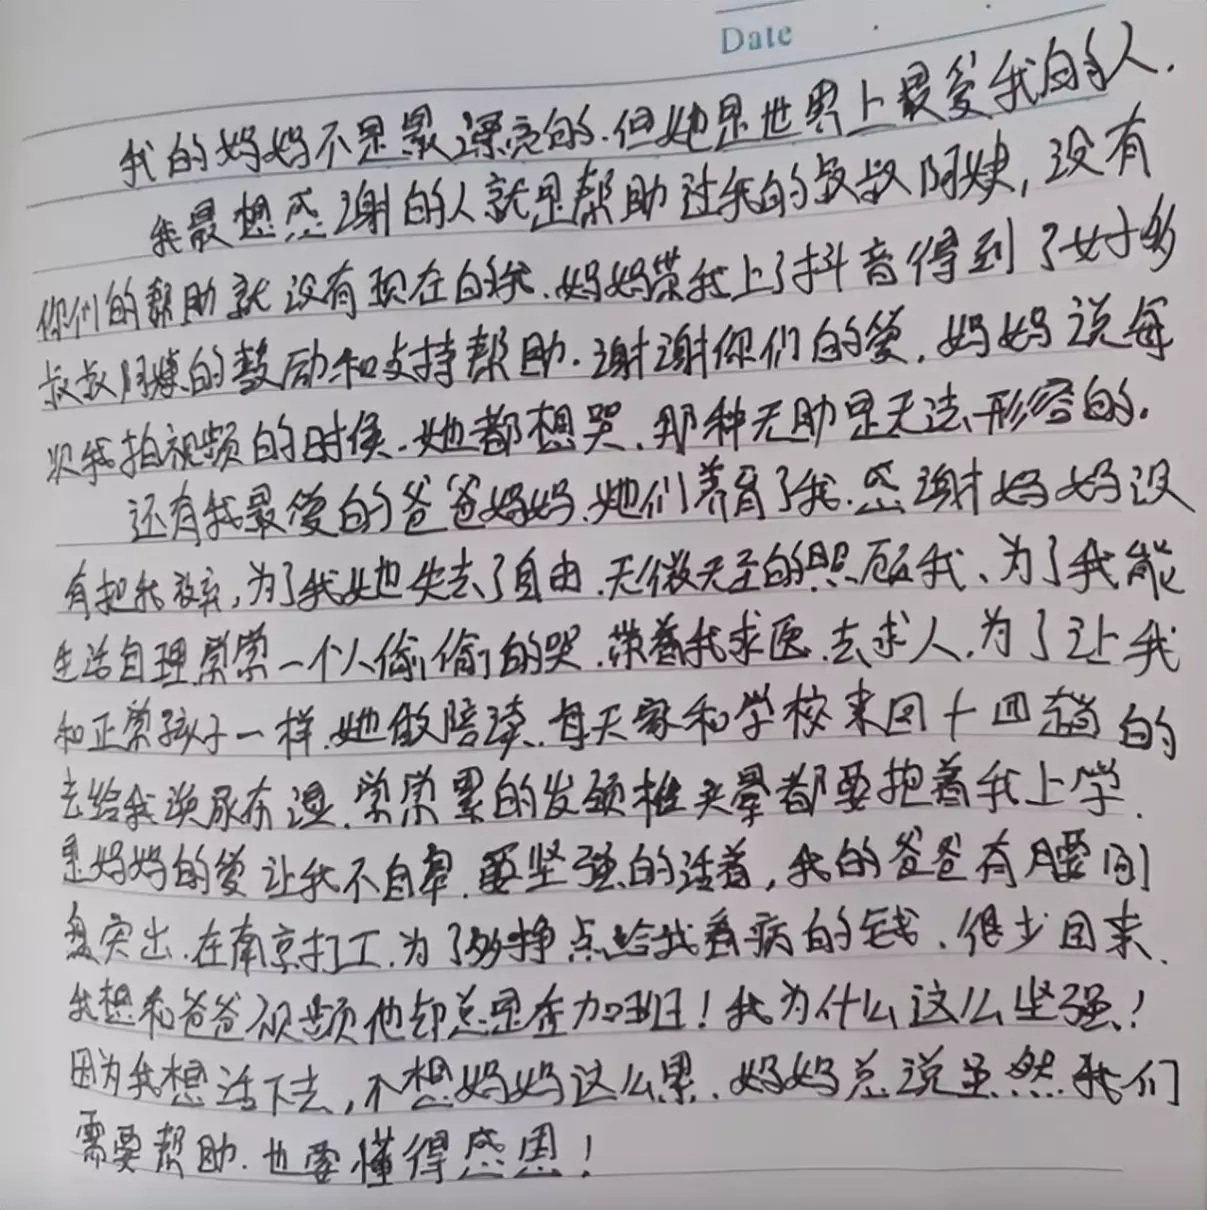 Date
我的妈妈不是最漂亮的.但她是世界上最爱我的人.
我最想感谢的人就是帮助过我的叔叔阿姨,没有
你们的帮助就没有现在的我.妈妈带我上了抖音得到了好多
叔叔阿姨的鼓励和支持帮助.谢谢你们的爱.妈妈说每
次我拍视频的时候.她都想哭.那种无助是无法形容的.
还有我最爱的爸爸妈妈.她们养育了我.感谢妈妈没
有把我放弃,为了我她失去了自由.无微无至的照顾我、为了我能
生活自理.常常一个人偷偷的哭.带着我求医.去求人.为了让我
和正常孩子一样.她做陪读.每天家和学校来回十四趟的
去给我换尿布湿.常常累的发颈椎头晕都要抱着我上学.
是妈妈的爱让我不自卑.要坚强的活着,我的爸爸有腰间
盘突出.在南京打工.为了多挣点给我看病的钱.很少回来.
我想和爸爸视频他却总是在加班!我为什么这么坚强!
因为我想活下去,不想妈妈这么累.妈妈总说虽然我们
需要帮助.也要懂得感恩!